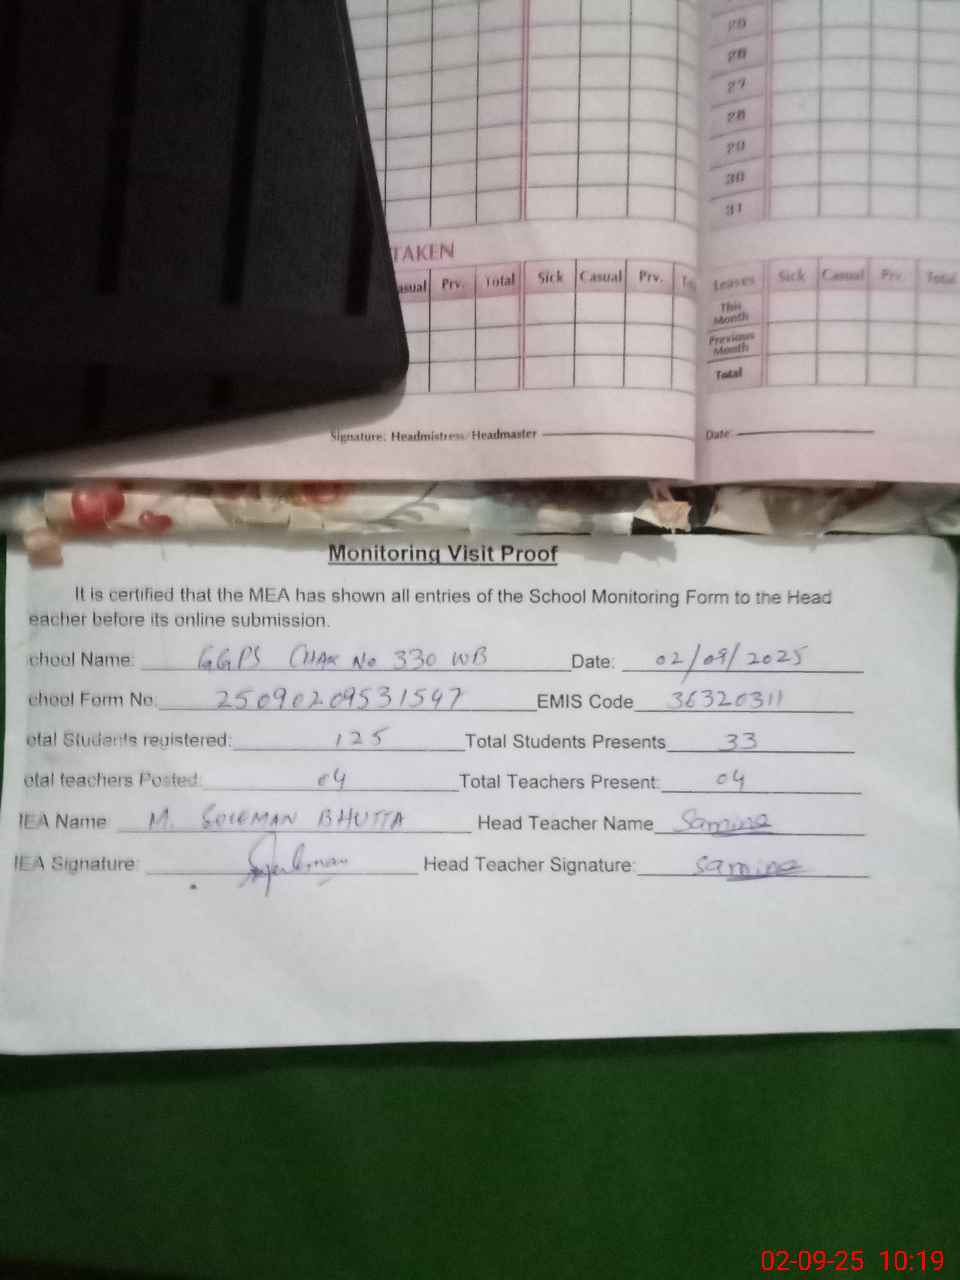 29
26
27
28
29
30
31
TAKEN
asual Prv. Total Sick Casual Prv. Leaves Sick Casual Prv. Total
This Month
Previous Month
Total
Signature: Headmistress/Headmaster Date:
Monitoring Visit Proof
It is certified that the MEA has shown all entries of the School Monitoring Form to the Head
eacher before its online submission.
chool Name: GGPS CHAK No 330 WB Date: 02/09/2025
chool Form No: 25090209531547 EMIS Code 36320311
otal Students registered: 125 Total Students Presents 33
otal teachers Posted: 04 Total Teachers Present: 04
IEA Name: M. SULEMAN BHUTTA Head Teacher Name Samina
IEA Signature: Head Teacher Signature: Samina
02-09-25 10:19